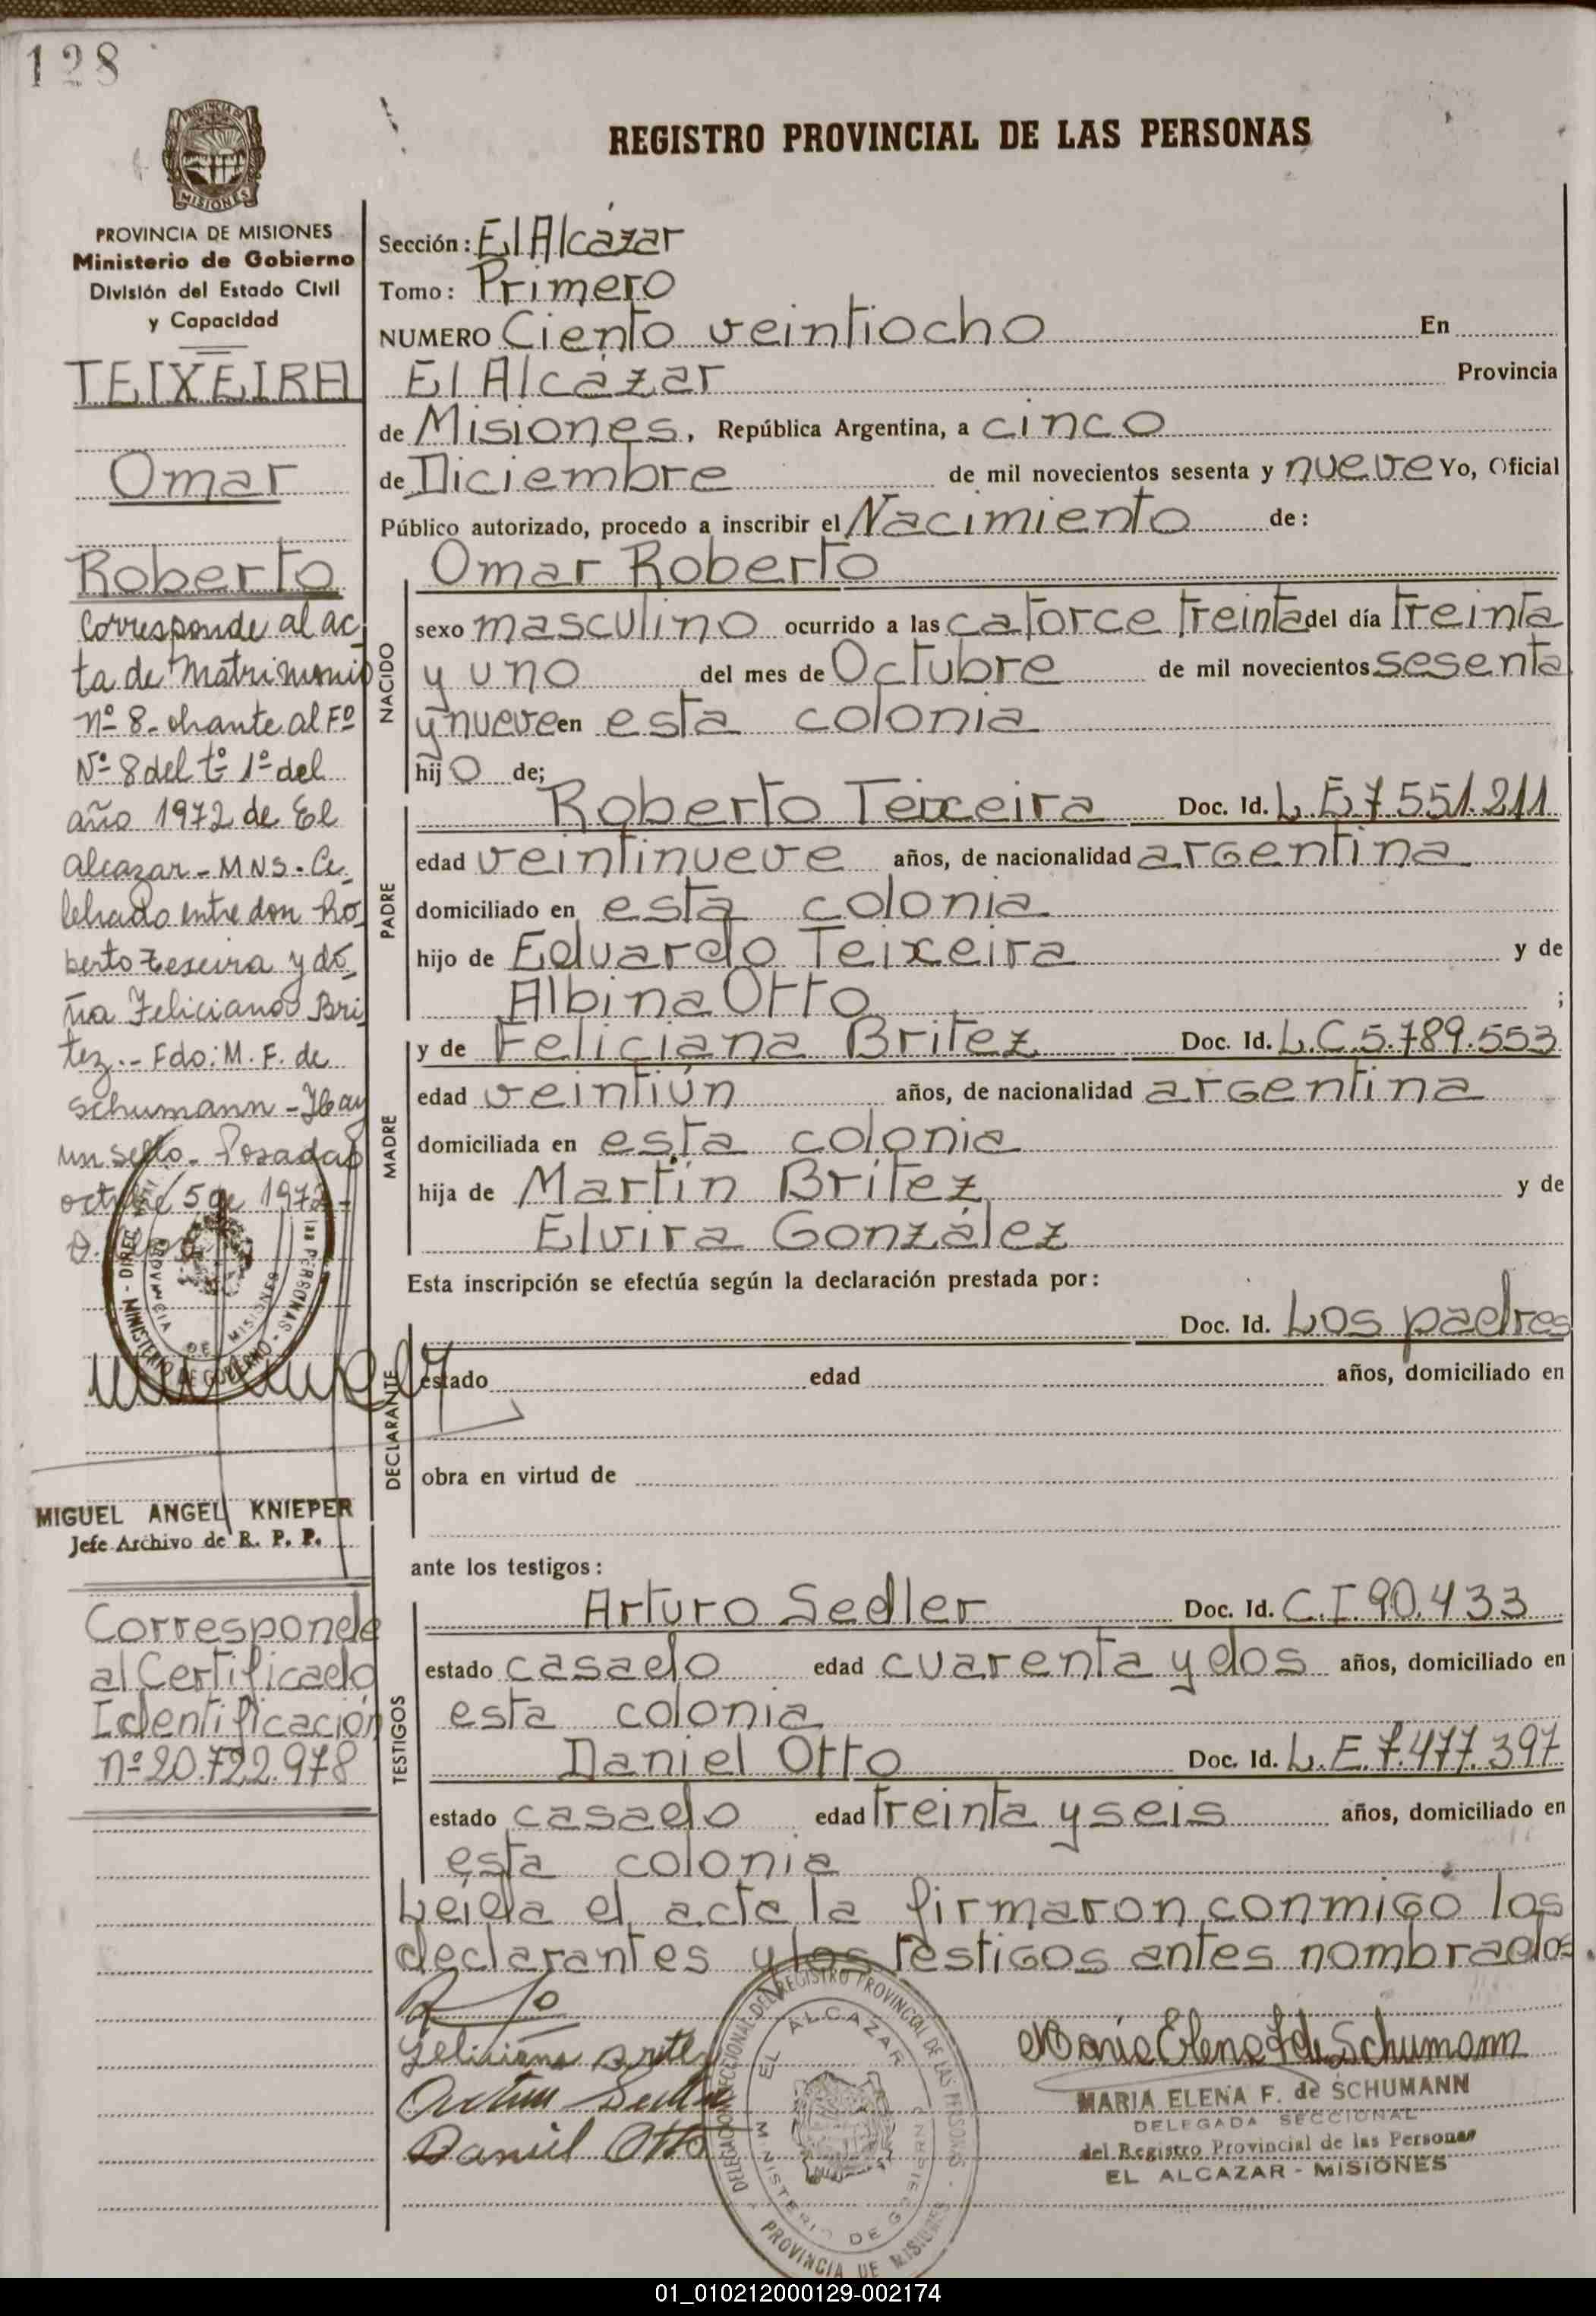 128
PROVINCIA DE
MISIONES
REGISTRO PROVINCIAL DE LAS PERSONAS
PROVINCIA DE MISIONES
Ministerio de Gobierno
División del Estado Civil
y Capacidad
TEIXEIRA
Omar
Roberto
Corresponde al ac_
ta de Matrimonio
nº 8 - obrante al Fº
Nº 8 del tº 1º del
año 1972 de El
alcazar - MNS. Ce_
lebrado entre don Ro_
berto Texeira y do_
ña Feliciana Bri_
tez.- Fdo: M. F. de
Schumann - Hay
un sello. Posadas
octubre 5 de 1972 -
MIGUEL ANGEL KNIEPER
Jefe Archivo de R. P. P.
Corresponde
al Certificado
Identificación
nº 20.722.978
Sección: El Alcázar
Tomo: Primero
NUMERO Ciento veintiocho En
El Alcázar Provincia
de Misiones, República Argentina, a cinco
de Diciembre de mil novecientos sesenta y nueve Yo, Oficial
Público autorizado, procedo a inscribir el Nacimiento de:
Omar Roberto
NACIDO
sexo masculino ocurrido a las catorce treinta del día treinta
y uno del mes de Octubre de mil novecientos sesenta
y nueve en esta colonia
hijo de;
PADRE
Roberto Teixeira Doc. Id. L.E.7.551.211
edad veintinueve años, de nacionalidad argentina
domiciliado en esta colonia
hijo de Eduardo Teixeira y de
Albina Otto ;
MADRE
y de Feliciana Britez Doc. Id. L.C.5.789.553
edad veintiún años, de nacionalidad argentina
domiciliada en esta colonia
hija de Martín Britez y de
Elvira González
Esta inscripción se efectúa según la declaración prestada por:
DECLARANTE
Doc. Id. Los padres
estado edad años, domiciliado en
obra en virtud de
ante los testigos:
TESTIGOS
Arturo Sedler Doc. Id. C.I.90.433
estado casado edad cuarenta y dos años, domiciliado en
esta colonia
Daniel Otto Doc. Id. L.E.7.477.397
estado casado edad treinta y seis años, domiciliado en
esta colonia
Leída el acta la firmaron conmigo los
declarantes y los testigos antes nombrados.
Feliciana Britez
Arturo Sedler
Daniel Otto
DELEGACION SECCIONAL DEL REGISTRO PROVINCIAL DE LAS PERSONAS
EL ALCAZAR
MINISTERIO DE GOBIERNO
PROVINCIA DE MISIONES
María Elena F. de Schumann
MARIA ELENA F. de SCHUMANN
DELEGADA SECCIONAL
del Registro Provincial de las Personas
EL ALCAZAR - MISIONES
01_010212000129-002174